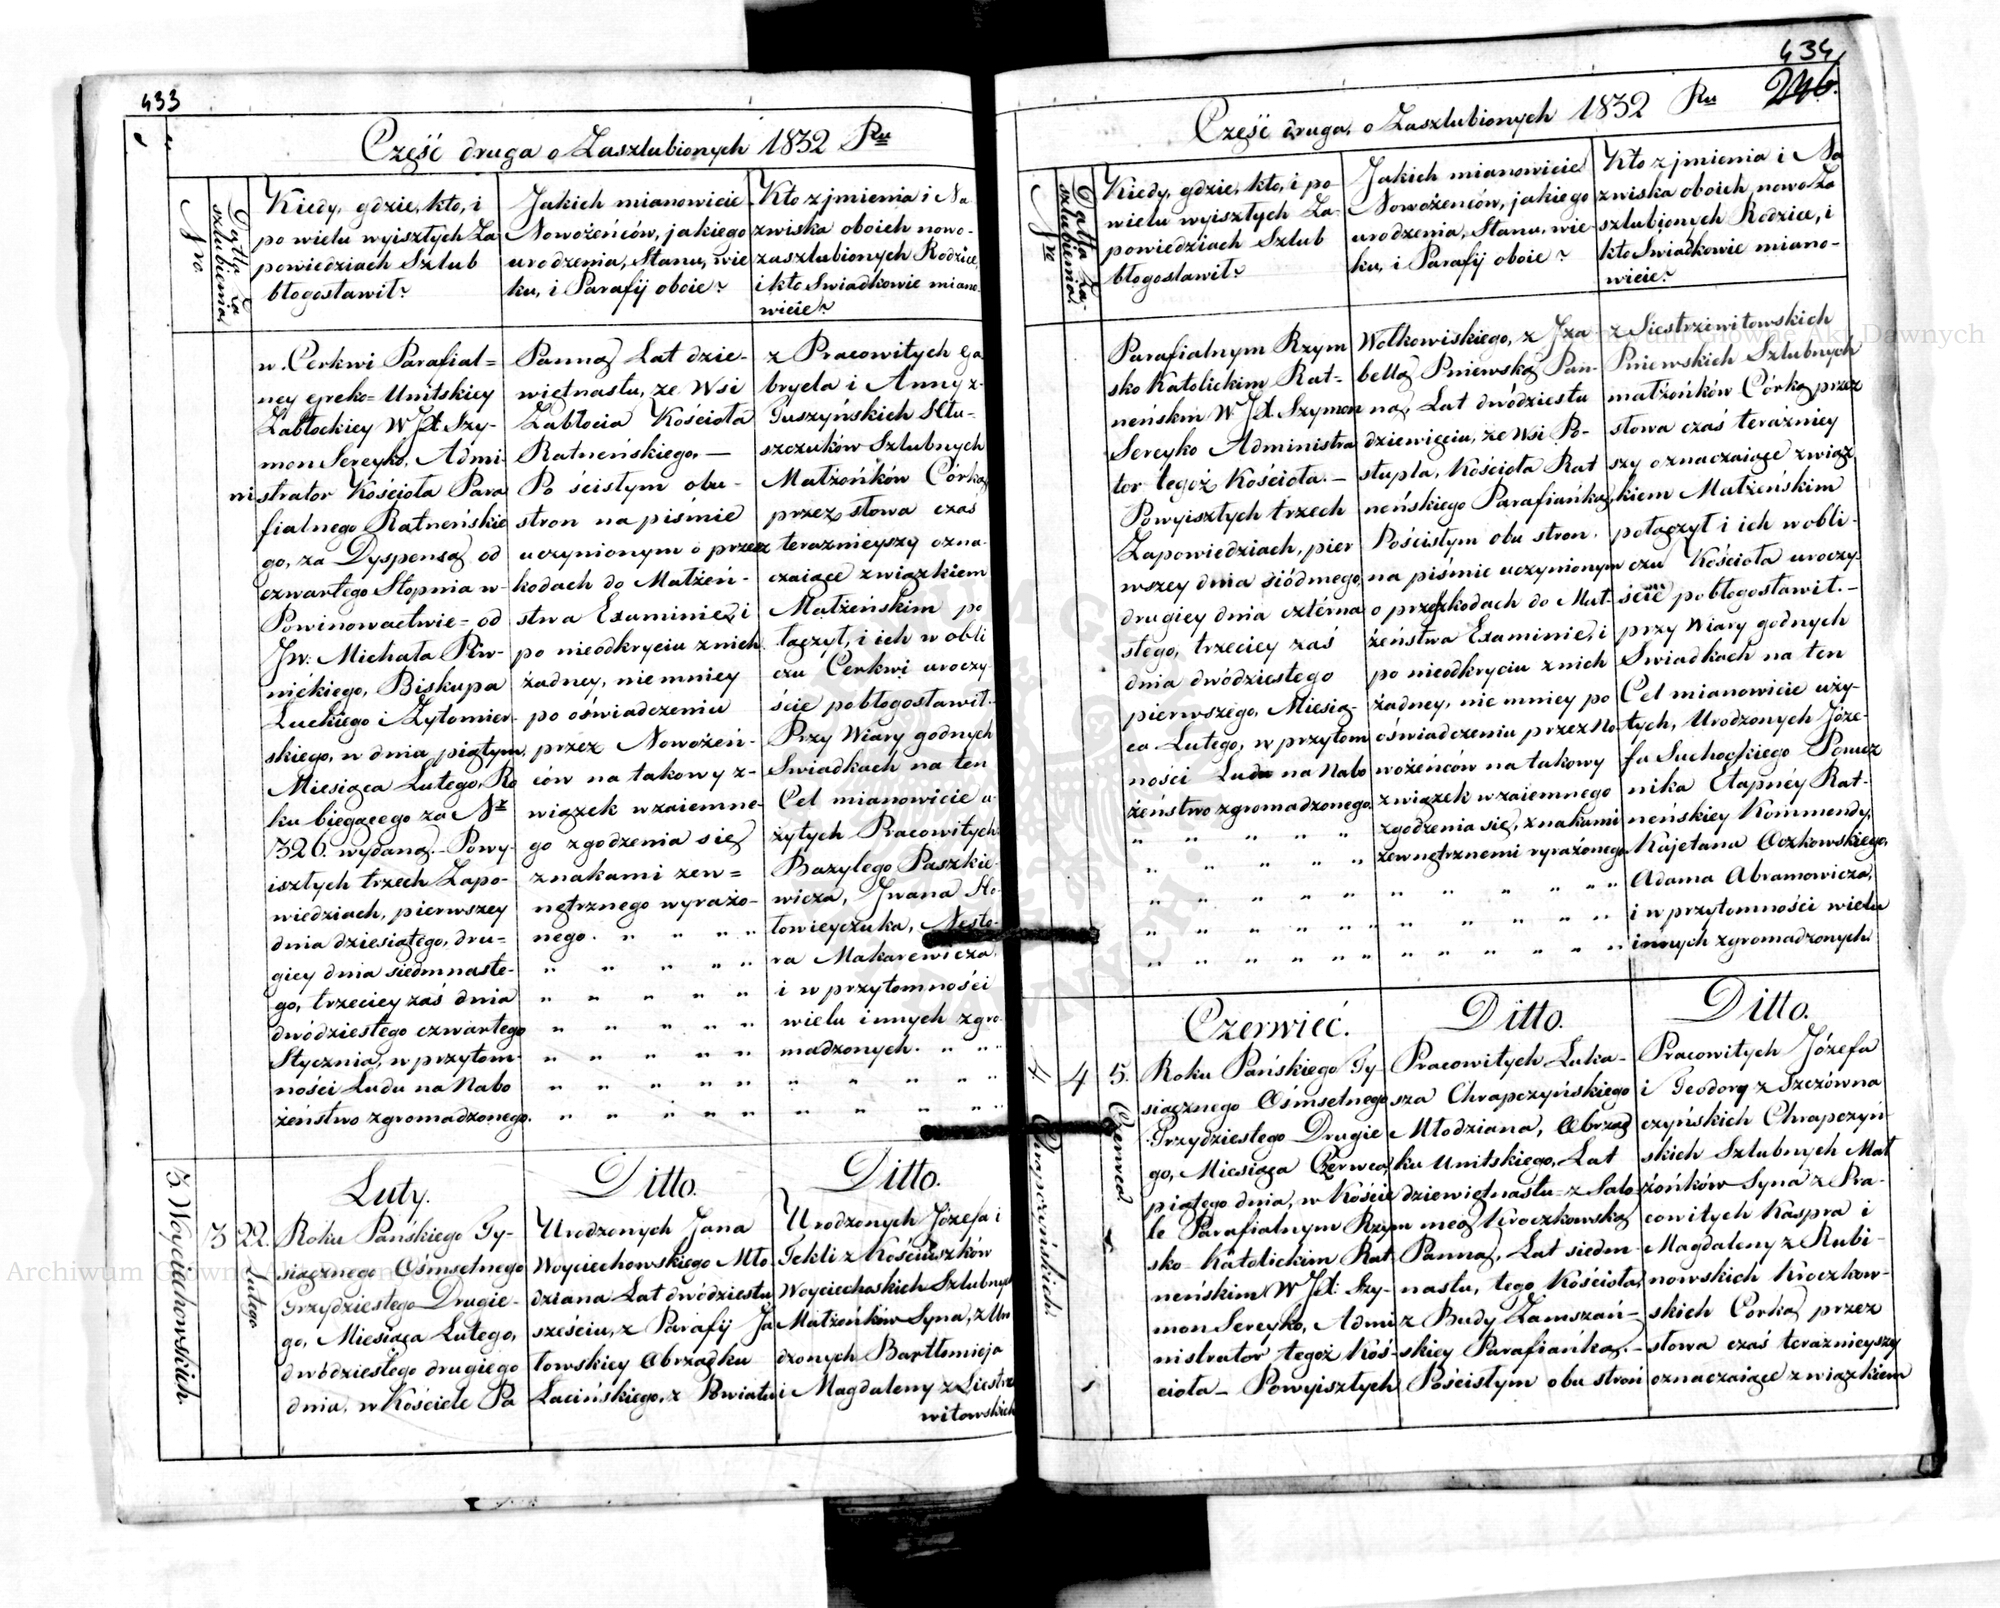 433
Część druga o Zaszlubionych 1832 Ru
Nro.
Datta Za
szlubienia
Kiedy, gdzie, kto, i
po wielu wyisztych Za
powiedziach Szlub
błogosławił?
Jakich mianowicie
Nowożeńców, jakiego
urodzenia, Stanu, wie
ku, i Parafij oboie?
Kto z jmienia i Na
zwiska oboich nowo-
zaszlubionych Rodzice,
i kto Swiadkowie miano
wicie?
w Cerkwi Parafial=
ney Greko=Unitskiey
Zabłockiey WJX Szy-
mon Sereyko, Admi
nistrator Kościoła Para
fialnego Ratneńskie
go, za Dyspensą od
czwartego Stopnia w-
Powinowactwie= od
Jw: Michała Piw-
nickiego, Biskupa
Luckiego i Zytomier-
skiego, w dnia piątym
Miesiąca Lutego, Ro
ku biegącego za Nr
326. wydaną.- Powy-
isztych trzech Zapo-
wiedziach, pierwszey
dnia dziesiątego, dru=
giey dnia siedmnaste-
go, trzeciey zaś dnia
dwódziestego czwartego
Stycznia, w przytom-
ności Ludu na Nabo
żeństwo zgromadzonego.
Panną Lat dzie-
więtnastu, ze Wsi
Zabłocia Kościoła
Ratneńskiego. —
Po ścisłym obu-
stron na piśmie
uczynionym o przesz
kodach do Małżeń-
stwa Examinie, i
po nieodkryciu z nich
żadney, niemniey
po oświadczeniu
przez Nowożeń-
ców na takowy z-
wiązek wzaiemne-
go zgodzenia się
znakami zew=
nętrznego wyrażo-
nego. " " " "
" " " " "
" " " " "
" " " " "
" " " " "
" " " " "
" " " " "
z Pracowitych Ga
bryela i Anny z-
Guszyńskich Hlu-
szczuków Szlubnych
Małżońków Córką,
przez słowa czas
teraznieyszy ozna
czaiące związkiem
Małżeńskim po
łączył, i ich w obli
czu Cerkwi uroczy
ście pobłogosławił.-
Przy Wiary godnych
Swiadkach na ten
Cel mianowicie u-
żytych Pracowitych
Bazylego Paszkie-
wicza, Jwana Ho-
towieyczuka, Nesto-
ra Makarewicza,
i w przytomności
wielu innych zgro-
madzonych. " " "
" " " " "
" " " " "
3. Woyciechowskich.
3
22.
Lutego
Luty.
Roku Pańskiego Ty-
siącznego Ośmsetnego
Trzydziestego Drugie-
go, Miesiąca Lutego,
dwódziestego drugiego
dnia, w Kościele Pa
Ditto.
Urodzonych Jana
Woyciechowskiego Mło
dziana Lat dwódziestu
sześciu, z Parafij Ja
łowskiey Obrządku
Łacińskiego, z Powiatu
Ditto.
Urodzonych Józefa i
Tekli z Kościuszków
Woyciechoskich Szlubnych
Małżońków Syna, z Uro
dzonych Bartłomieja
i Magdaleny z Siestrze
witowskich
434
246.
Część druga, o Zaszlubionych 1832 Ru
Nro
Datta Za-
szlubienia
Kiedy, gdzie, kto, i po
wielu wyisztych Za-
powiedziach Szlub
błogosławił?
Jakich mianowicie
Nowożeńców, jakiego
urodzenia, Stanu, wie-
ku, i Parafij oboie?
Kto z jmienia i Na
zwiska oboich, nowo Za
szlubionych Rodzice, i
kto Swiadkowie miano-
wicie?
Parafialnym Rzym
sko Katolickim Rat=
neńskm WJX. Szymon
Sereyko Administra
tor tegoż Kościoła.-
Powyisztych trzech
Zapowiedziach, pier
wszey dnia siódmego,
drugiey dnia cztérna
stego, trzeciey zaś
dnia dwódziestego
pierwszego, Miesią-
ca Lutego, w przytom
ności Ludu na Nabo
żeństwo zgromadzonego.
" " " " "
" " " " "
" " " " "
" " " " "
" " " " "
Wołkowiskiego, z Jza
bellą Pniewską Pan-
ną, Lat dwódziestu
dziewięciu, ze Wsi Po-
stupla, Kościoła Rat
neńskiego Parafianką,
Pościsłym obu stron
na piśmie uczynionym
o przeszkodach do Mał-
żeństwa Examinie, i
po nieodkryciu z nich
żadney, nie mniey po
oświadczeniu przez No
wożeńców na takowy
związek wzaiemnego
zgodzenia się, znakami
zewnętrznemi wyrażonego.
" " " " "
" " " " "
" " " " "
z Siestrzewitowskich
Pniewskich Szlubnych
małżońków Córką, przez
słowa czaś teraźniey
szy oznaczaiące związ
kiem Małżeńskim
połączył i ich w obli-
czu Kościoła uroczy
ście pobłogosławił.-
przy Wiary godnych
Swiadkach na ten
Cel mianowicie uży-
tych, Urodzonych Józe-
fa Suchockiego Porucz
nika Etapnéy Rat-
neńskiey Kommendy,
Kajetana Oczkowskiego,
Adama Abramowicza,
i w przytomności wielu
innych zgromadzonych.
4. Chrapczyńskich.
4
5.
Czerwca
Czerwieć.
Roku Pańskiego Ty-
siącznego Ośmsetnego
Trzydziestego Drugie
go, Miesiąca Czerwca,
piątego dnia, w Koście
le Parafialnym Rzym
sko-Katolickim Rat
neńskim WJX: Szy-
mon Sereyko, Admi
nistrator tegoż Koś-
cioła- Powyisztych
Ditto.
Pracowitych Łuka-
sza Chrapczyńskiego
Młodziana, Obrząd
ku Unitskiego, Lat
dziewiętnastu- z Salo
meą Kroczkowską
Panną, Lat siedm-
nastu, tego Kościoła,
z Budy Zamszań-
skiey Parafianką.-
Pościsłym obu stroń
Ditto.
Pracowitych Józefa
i Teodory z Szczówna
czyńskich Chrapczyń-
skich Szlubnych Mał
żońków Syna z Pra-
cowitych Kaspra i
Magdaleny z Rubi-
nowskich Kroczkow-
skich Corką, przez
słowa czaś teraznieyszy
oznaczaiące związkiem
Archiwum Główne Akt Dawnych
Archiwum Główne Akt Dawnych